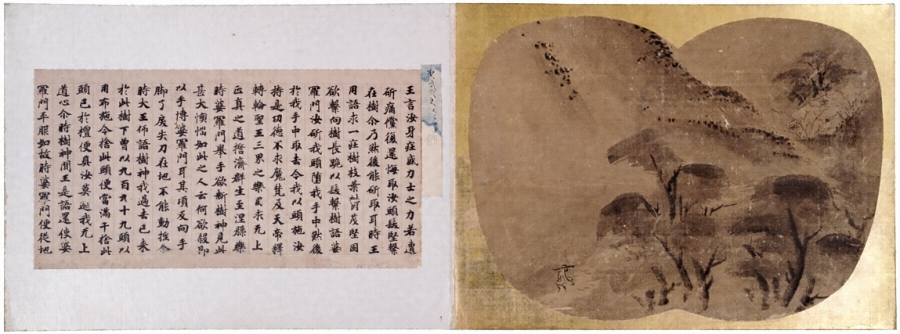 王言汝身庄盛力士之力若遭
斫痛儻復還悔取汝頭髮堅繫
在樹尒乃然後能斫取耳時王
用語求一庄樹枝葉欝茂堅固
欲繫向樹長跪以髮繫樹語婆
羅門汝斫我頭墮我手中然後
於我手中取去今我以頭施汝
持是功德不求魔梵及天帝釋
轉輪聖王三界之樂用求无上
正真之道誓濟群生至涅槃樂
時婆羅門舉手欲斫樹神見此
甚大懊惱如此之人云何欲煞即
以手搏婆羅門耳其項反向手
脚了戾失刀在地不能動搖尒
時大王即語樹神我過去已來
於此樹下曾以九百九十九頭以
用布施今捨此頭便當滿千捨此
頭已於檀便具汝莫遮我无上
道心尒時樹神聞王是語還使婆
羅門平服如故時婆羅門便從地